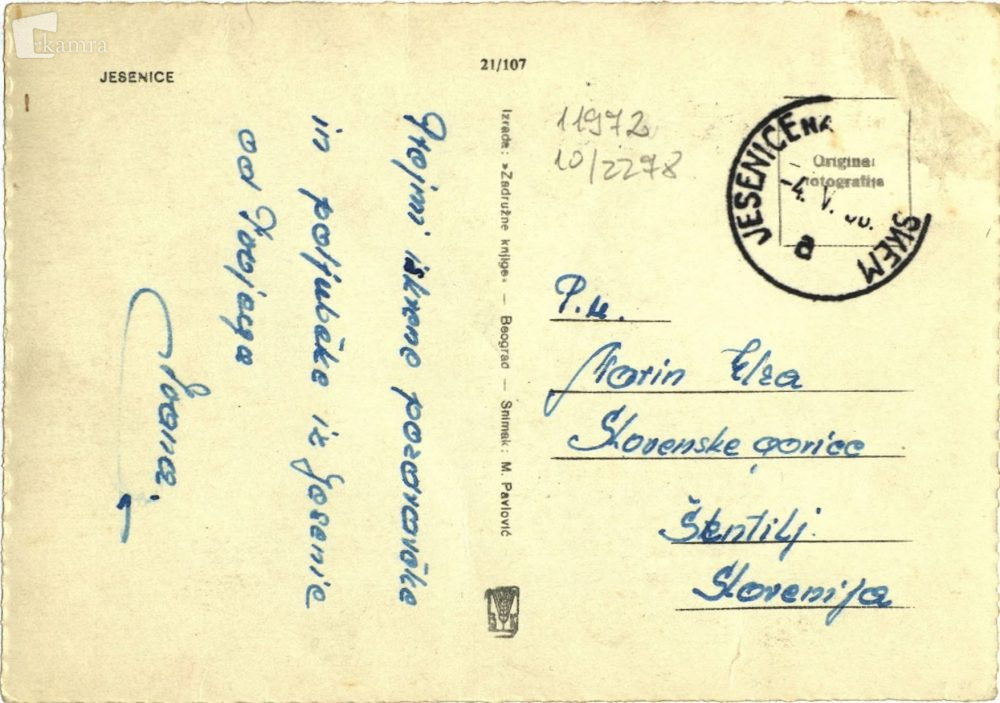 kamra
JESENICE
21/107
11972
10/2278
JESENICE NA
SKEM
-4. V.
a
Original
fotografija
Izrada: »Zadružne knjige« — Beograd — Snimak: M. Pavlović
iskrene pozdravčke
in poljubčke iz Jesenic
od Tvojega
P. n.
Marin Elza
Slovenske gorice
Šentilj
Slovenija